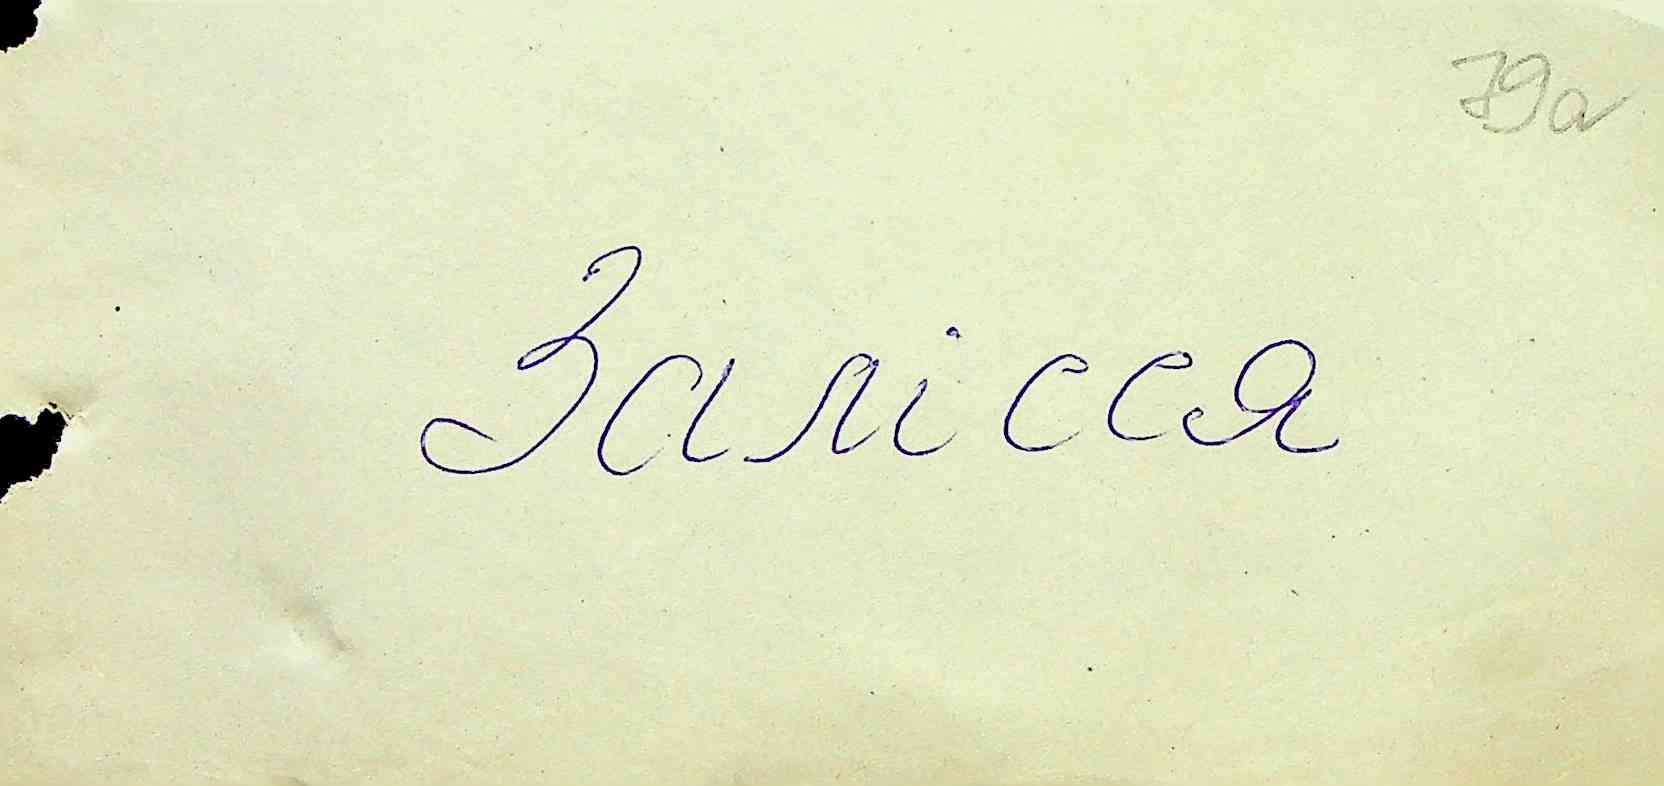 79а
Залісся